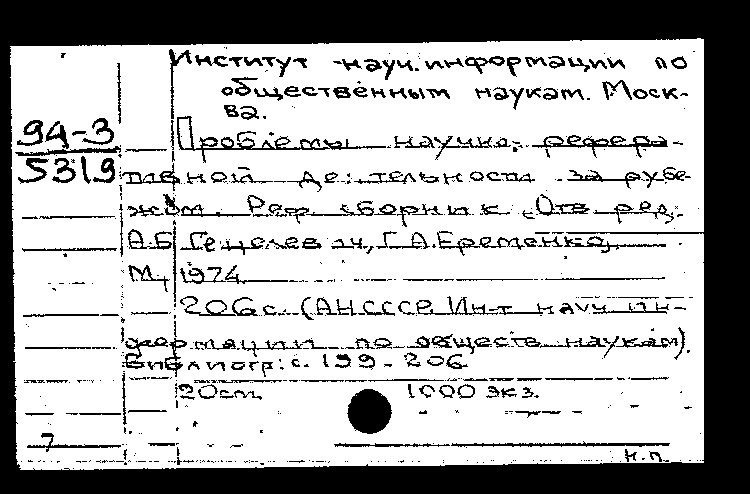 Институт науч. информации по
общественным наукам. Моск-
ва.
94-3
5319
Проблемы научно- рефера-
тивной деятельности за рубе-
жом. Реф. сборник. Отв. ред.
А.Б. Г.А. Еременко,
М., 1974.
206 с. (АН СССР. Ин-т науч. ин-
формации по обществ. наукам).
Библиогр: с. 199-206
20 см. 1000 экз.
7
н.п.